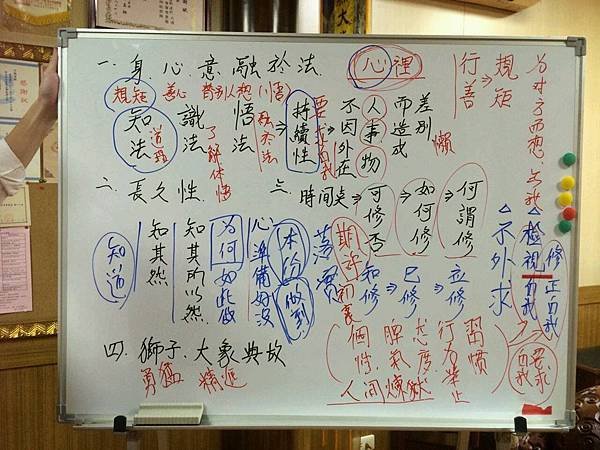 一.身.心.意融於法.
心裡
規矩 善心 替別人想 心悟
知法 道理
識法 了解体悟
悟法 融於法
⇒ 持續性
要求自我
不因外在
人事物
而造成
差別
懶
行善
⇒ 規矩
為対方而想.無我
二.長久性.
知道
知其然
知其所以然
為何如此做
心準備好没
本份 做到
三.時間点
⇒ 可修否
⇒ 如何修
⇒ 何謂修
落實
期許初衷
和修 ⇒ 已修 ⇒ 立修
△不外求
△檢視自我
修正自我
要求自我
個性.脾氣.态度.行為舉止 習慣
人間煉獄
四.獅子.大象典故
勇猛 精進
感謝狀
大